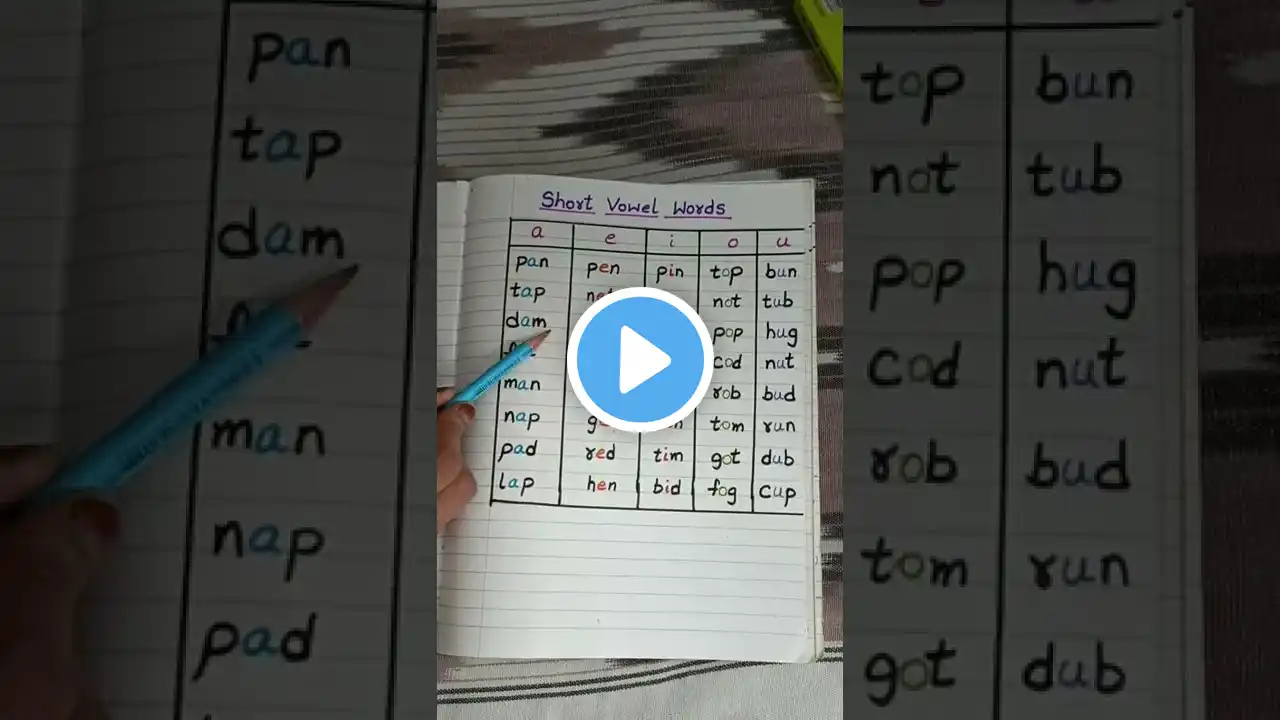 pan
tap
dam
man
nap
pad
Short Vowel Words
a e i o u
pan pen pin top bun
tap not tub
dam pop hug
cod nut
man rob bud
nap tom run
pad red tim got dub
lap hen bid fog cup
top bun
not tub
pop hug
cod nut
rob bud
tom run
got dub